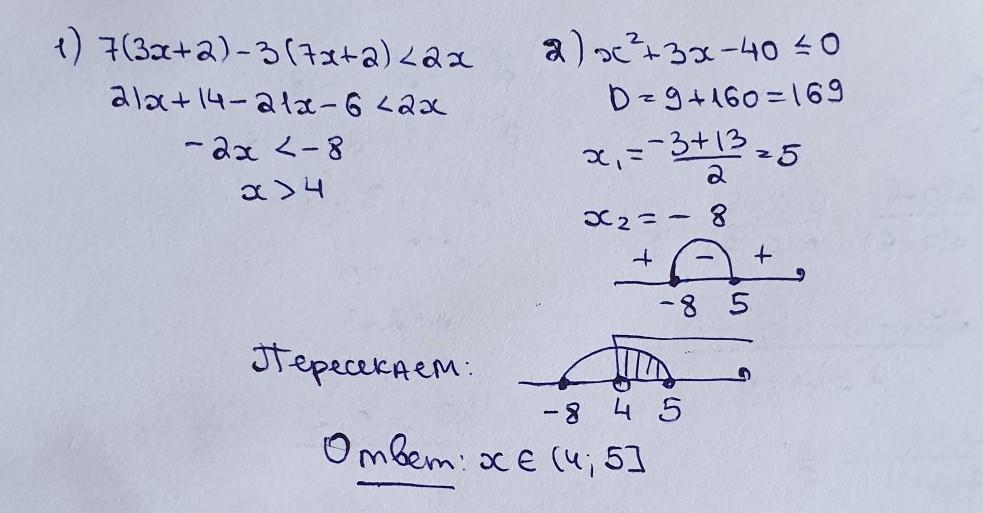 1) 7(3x+2)-3(7x+2)<2x
21x+14-21x-6<2x
-2x<-8
x>4
2) x²+3x-40≤0
D=9+160=169
x₁=(-3+13)/2=5
x₂=-8
+ - +
-8 5
Пересекаем:
-8 4 5
Ответ: x∈(4;5]